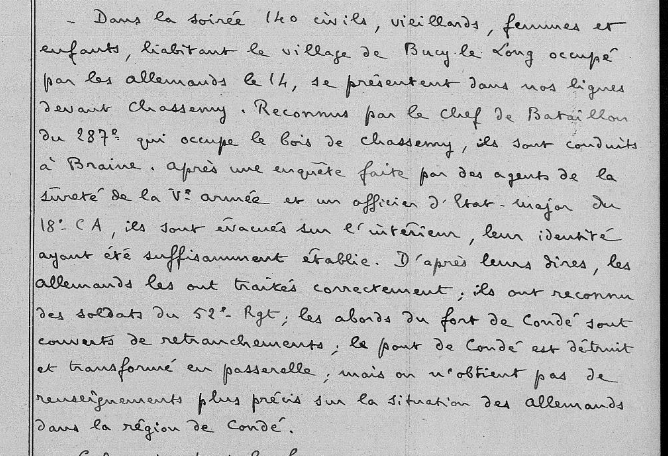 - Dans la soirée 140 civils, vieillards, femmes et
enfants, habitant le village de Bucy-le-Long occupé
par les allemands le 14, se présentent dans nos lignes
devant Chassemy. Reconnus par le Chef de Bataillon
du 287e qui occupe le bois de Chassemy, ils sont conduits
à Braine. Après une enquête faite par des agents de la
sûreté de la Ve armée et un officier d'Etat-major du
18e CA, ils sont évacués sur l'intérieur, leur identité
ayant été suffisamment établie. D'après leurs dires, les
allemands les ont traités correctement; ils ont reconnu
des soldats du 52e Rgt; les abords du fort de Condé sont
couverts de retranchements; le pont de Condé est détruit
et transformé en passerelle; mais on n'obtient pas de
renseignements plus précis sur la situation des allemands
dans la région de Condé.